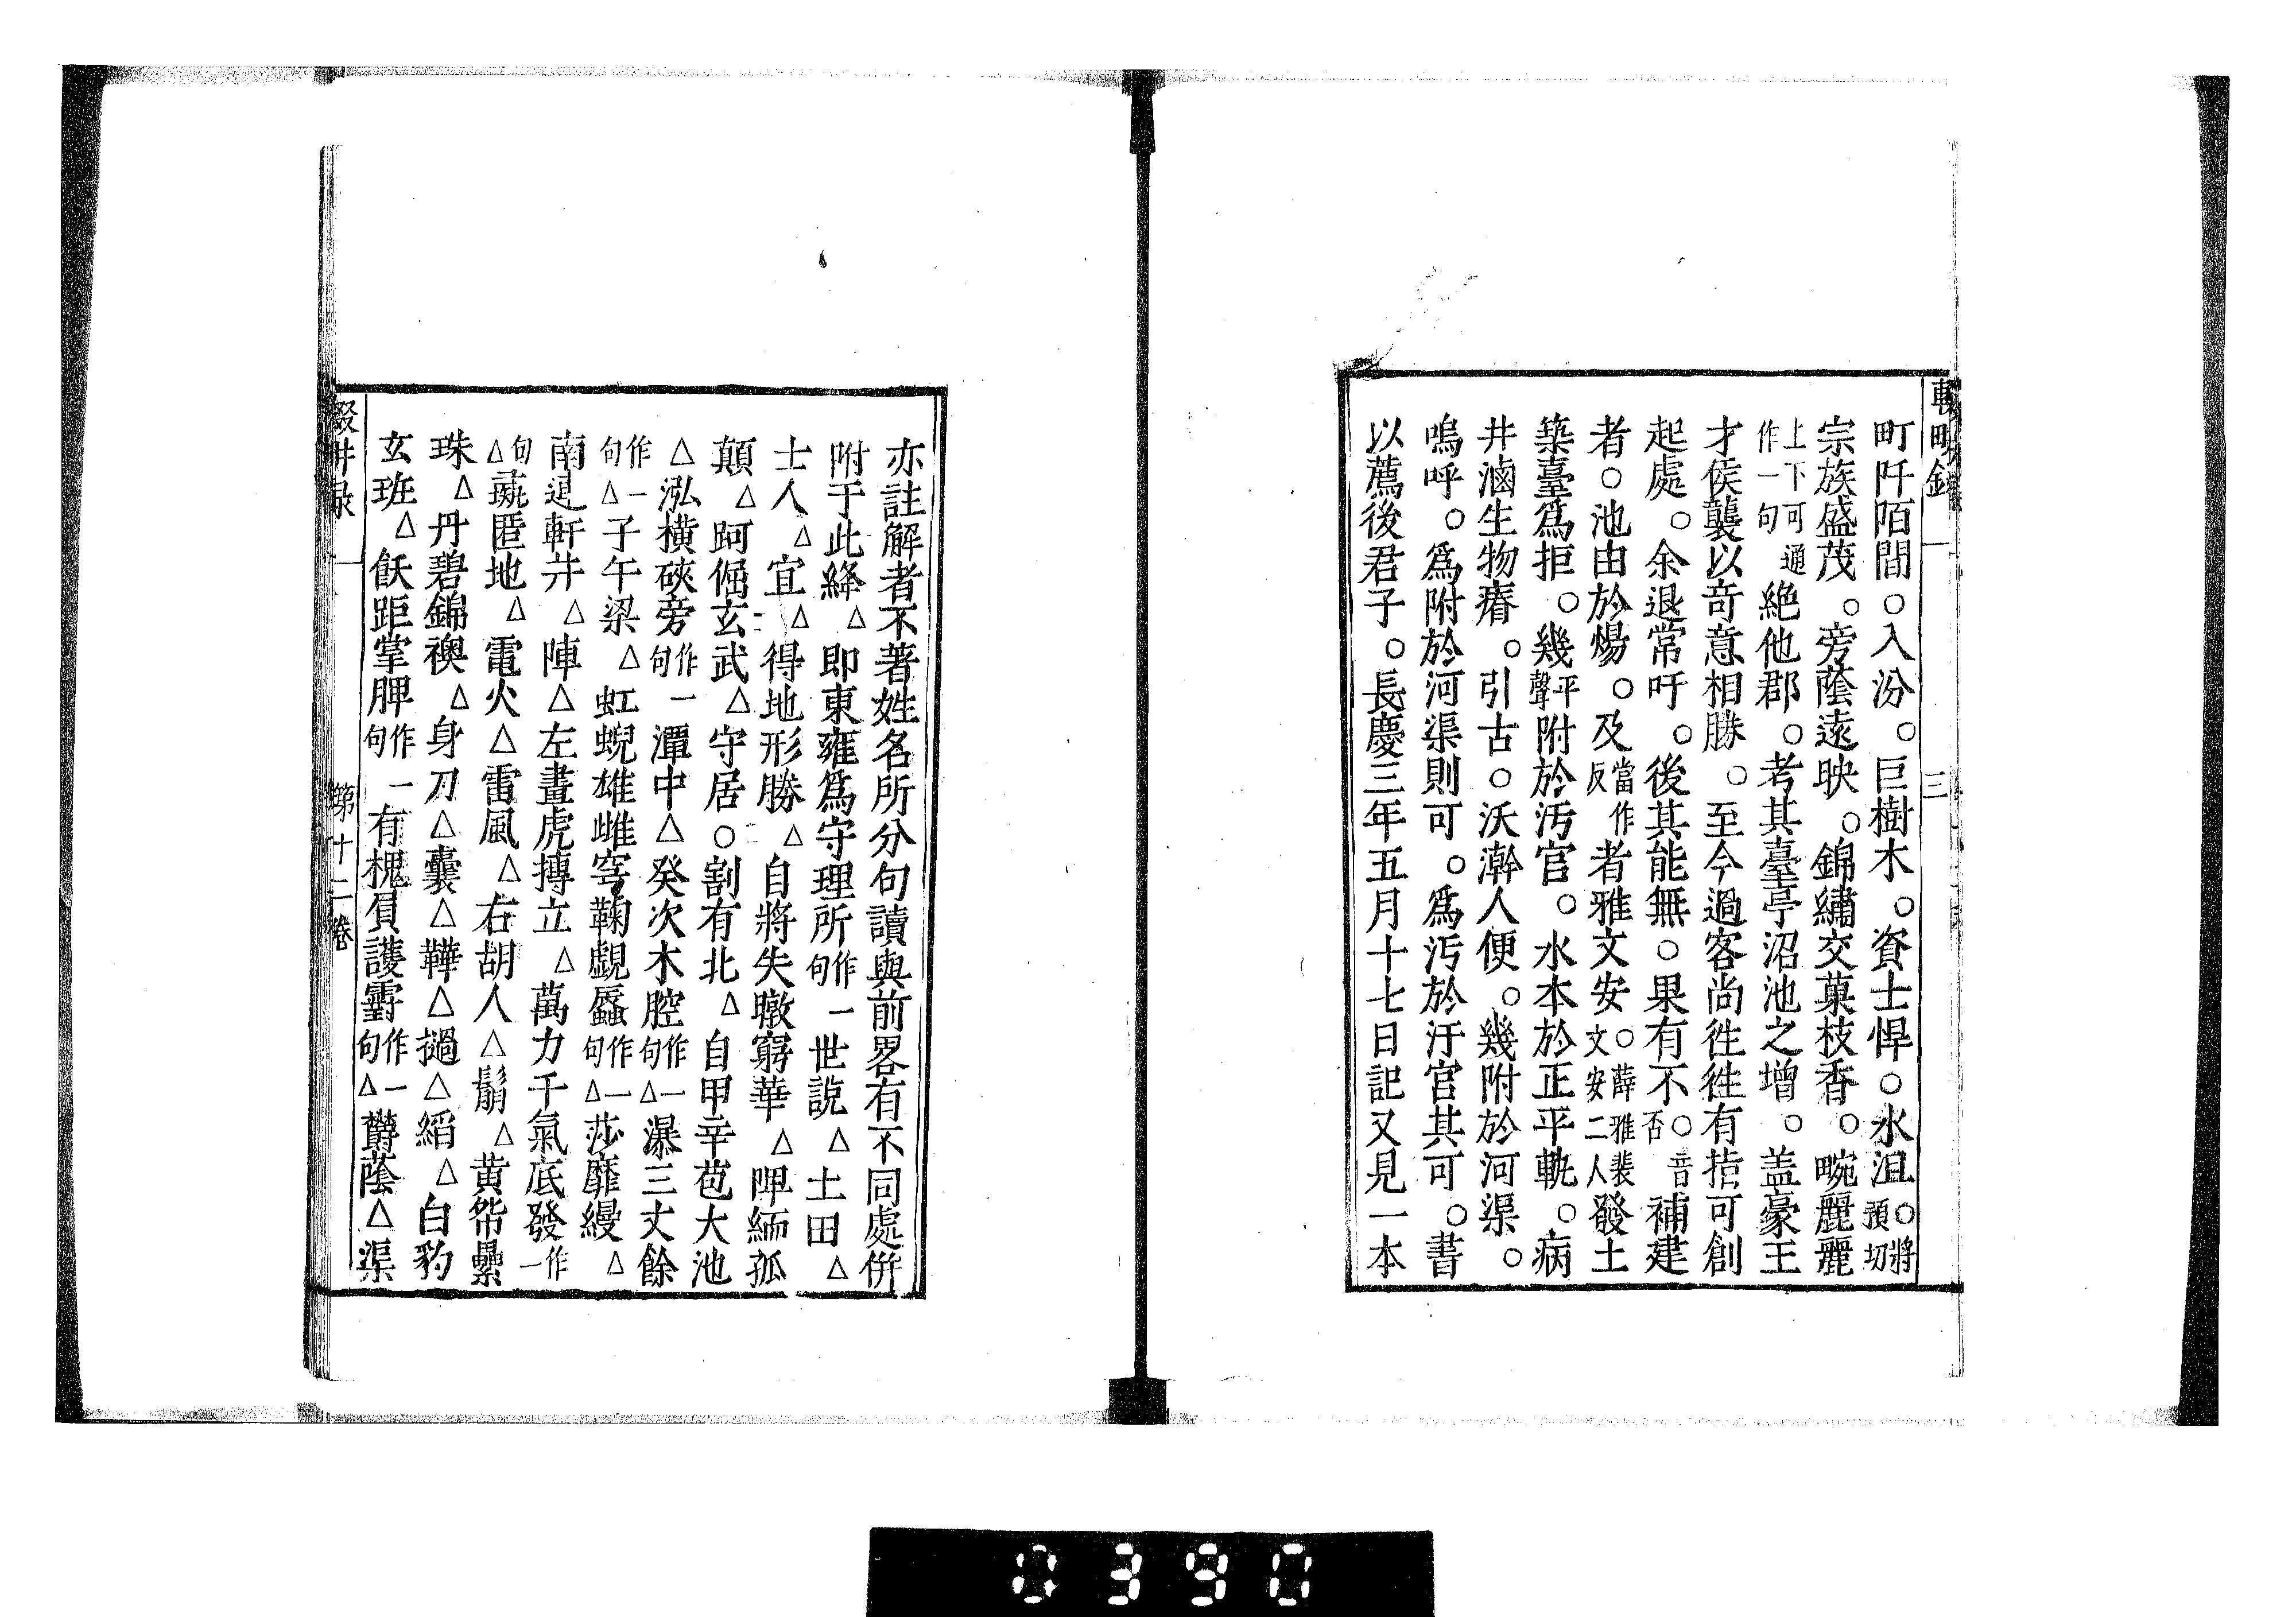 町阡陌間○入汾○巨樹木○資士悍○水沮○將預切
宗族盛茂○旁蔭遠映○錦繡交菓枝香○畹麗麗
上下可通作一句絶他郡○考其臺亭沼池之增○盖豪王
才侯襲以竒意相勝○至今過客尚徃徃有指可創
起處○余退常吁○後其能無○果有不○音否補建
者○池由於煬○及當作反者雅文安○薛雅裴文安二人發土
築臺爲拒○幾平聲附於汚官○水本於正平軌○病
井滷生物瘠○引古○沃澣人便○幾附於河渠○
嗚呼○爲附於河渠則可○爲汚於汙宫其可○書
以薦後君子○長慶三年五月十七日記又見一本
亦註解者不著姓名所分句讀與前畧有不同處併
附于此絳△即東雍爲守理所作一句世說△土田△
士人△宜△得地形勝△自將失暾窮華△陴緬孤
顛△跒倔玄武△守居○割有北△自甲辛苞大池
△泓橫硤旁作一句潭中△癸次木腔作一句△瀑三丈餘
作一句△子午梁△虹蜺雄雌穹鞠覷蜃作一句△莎靡縵△
南退軒井△陣△左畫虎搏立△萬力千氣底發作一
句△彘匿地△電火△雷風△右胡人△鬅△黄帒纍
珠△丹碧錦襖△身刀△囊△鞾△撾△縚△白豹
玄班△飫距掌脾作一句有槐負護霨作一句△欝蔭△渠
輟畊録 三
輟畊録 第十二卷
0390